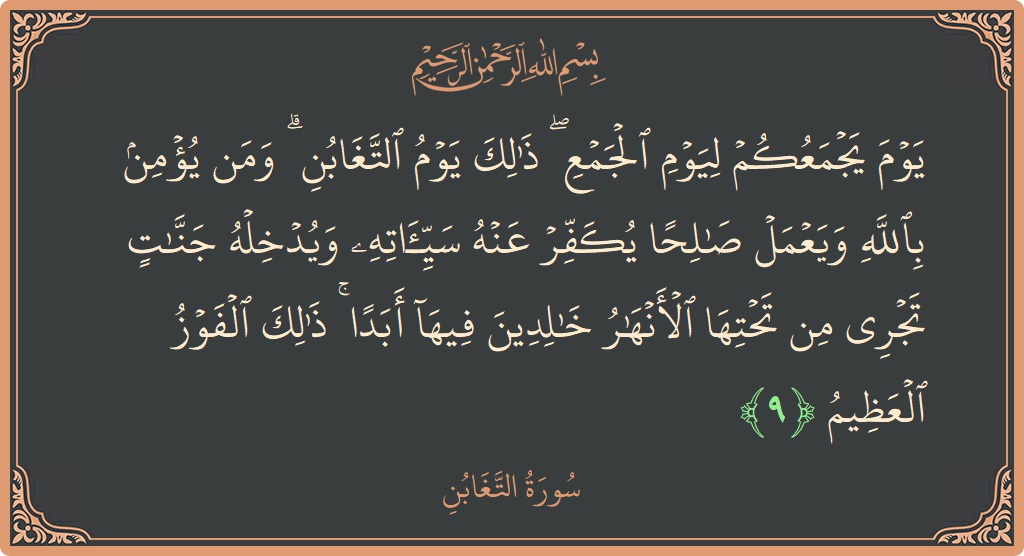 بِسْمِ اللهِ الرَّحْمٰنِ الرَّحِيْمِ
يَوۡمَ يَجۡمَعُكُمۡ لِيَوۡمِ ٱلۡجَمۡعِۖ ذَٰلِكَ يَوۡمُ ٱلتَّغَابُنِۗ وَمَن يُؤۡمِنۢ
بِٱللَّهِ وَيَعۡمَلۡ صَٰلِحًا يُكَفِّرۡ عَنۡهُ سَيِّـَٔاتِهِۦ وَيُدۡخِلۡهُ جَنَّٰتٍ
تَجۡرِي مِن تَحۡتِهَا ٱلۡأَنۡهَٰرُ خَٰلِدِينَ فِيهَآ أَبَدًاۚ ذَٰلِكَ ٱلۡفَوۡزُ
ٱلۡعَظِيمُ ﴿٩﴾
سُورَةُ التَّغَابُنِ